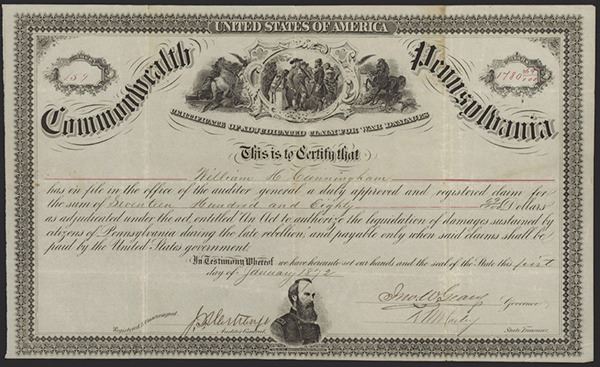 UNITED STATES OF AMERICA
Commonwealth Pennsylvania
CERTIFICATE OF ADJUDICATED CLAIM FOR WAR DAMAGES
This is to Certify that
William H Cunningham
has on file in the office of the auditor general a duly approved and registered claim for
the sum of Seventeen Hundred and Eighty Dollars
as adjudicated under the act, entitled An Act to authorize the liquidation of damages sustained by
citizens of Pennsylvania during the late rebellion, and payable only when said claims shall be
paid by the United States government.
In Testimony Whereof we have hereunto set our hands and the seal of the State this first
day of January 1872
Jno W Geary Governor
Registered & countersigned
Auditor General
State Treasurer